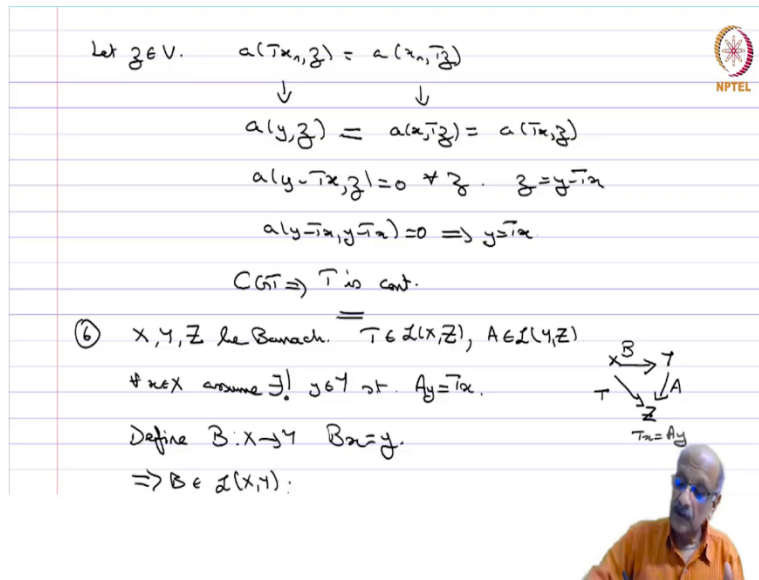 Let z ∈ V. a(Txₙ, z) = a(xₙ, Tz)
↓ ↓
a(y, z) = a(x, Tz) = a(Tx, z)
a(y-Tx, z) = 0 ∀ z. z = y-Tx
a(y-Tx, y-Tx) = 0 ⇒ y = Tx.
CGT ⇒ T is cont.
⑥ X, Y, Z be Banach. T ∈ ℒ(X,Z), A ∈ ℒ(Y,Z)
∀ x∈X assume ∃! y∈Y st. Ay = Tx.
Define B: X→Y Bx = y.
⇒ B ∈ ℒ(X,Y):
X B Y
T A
Z
Tx = Ay
NPTEL